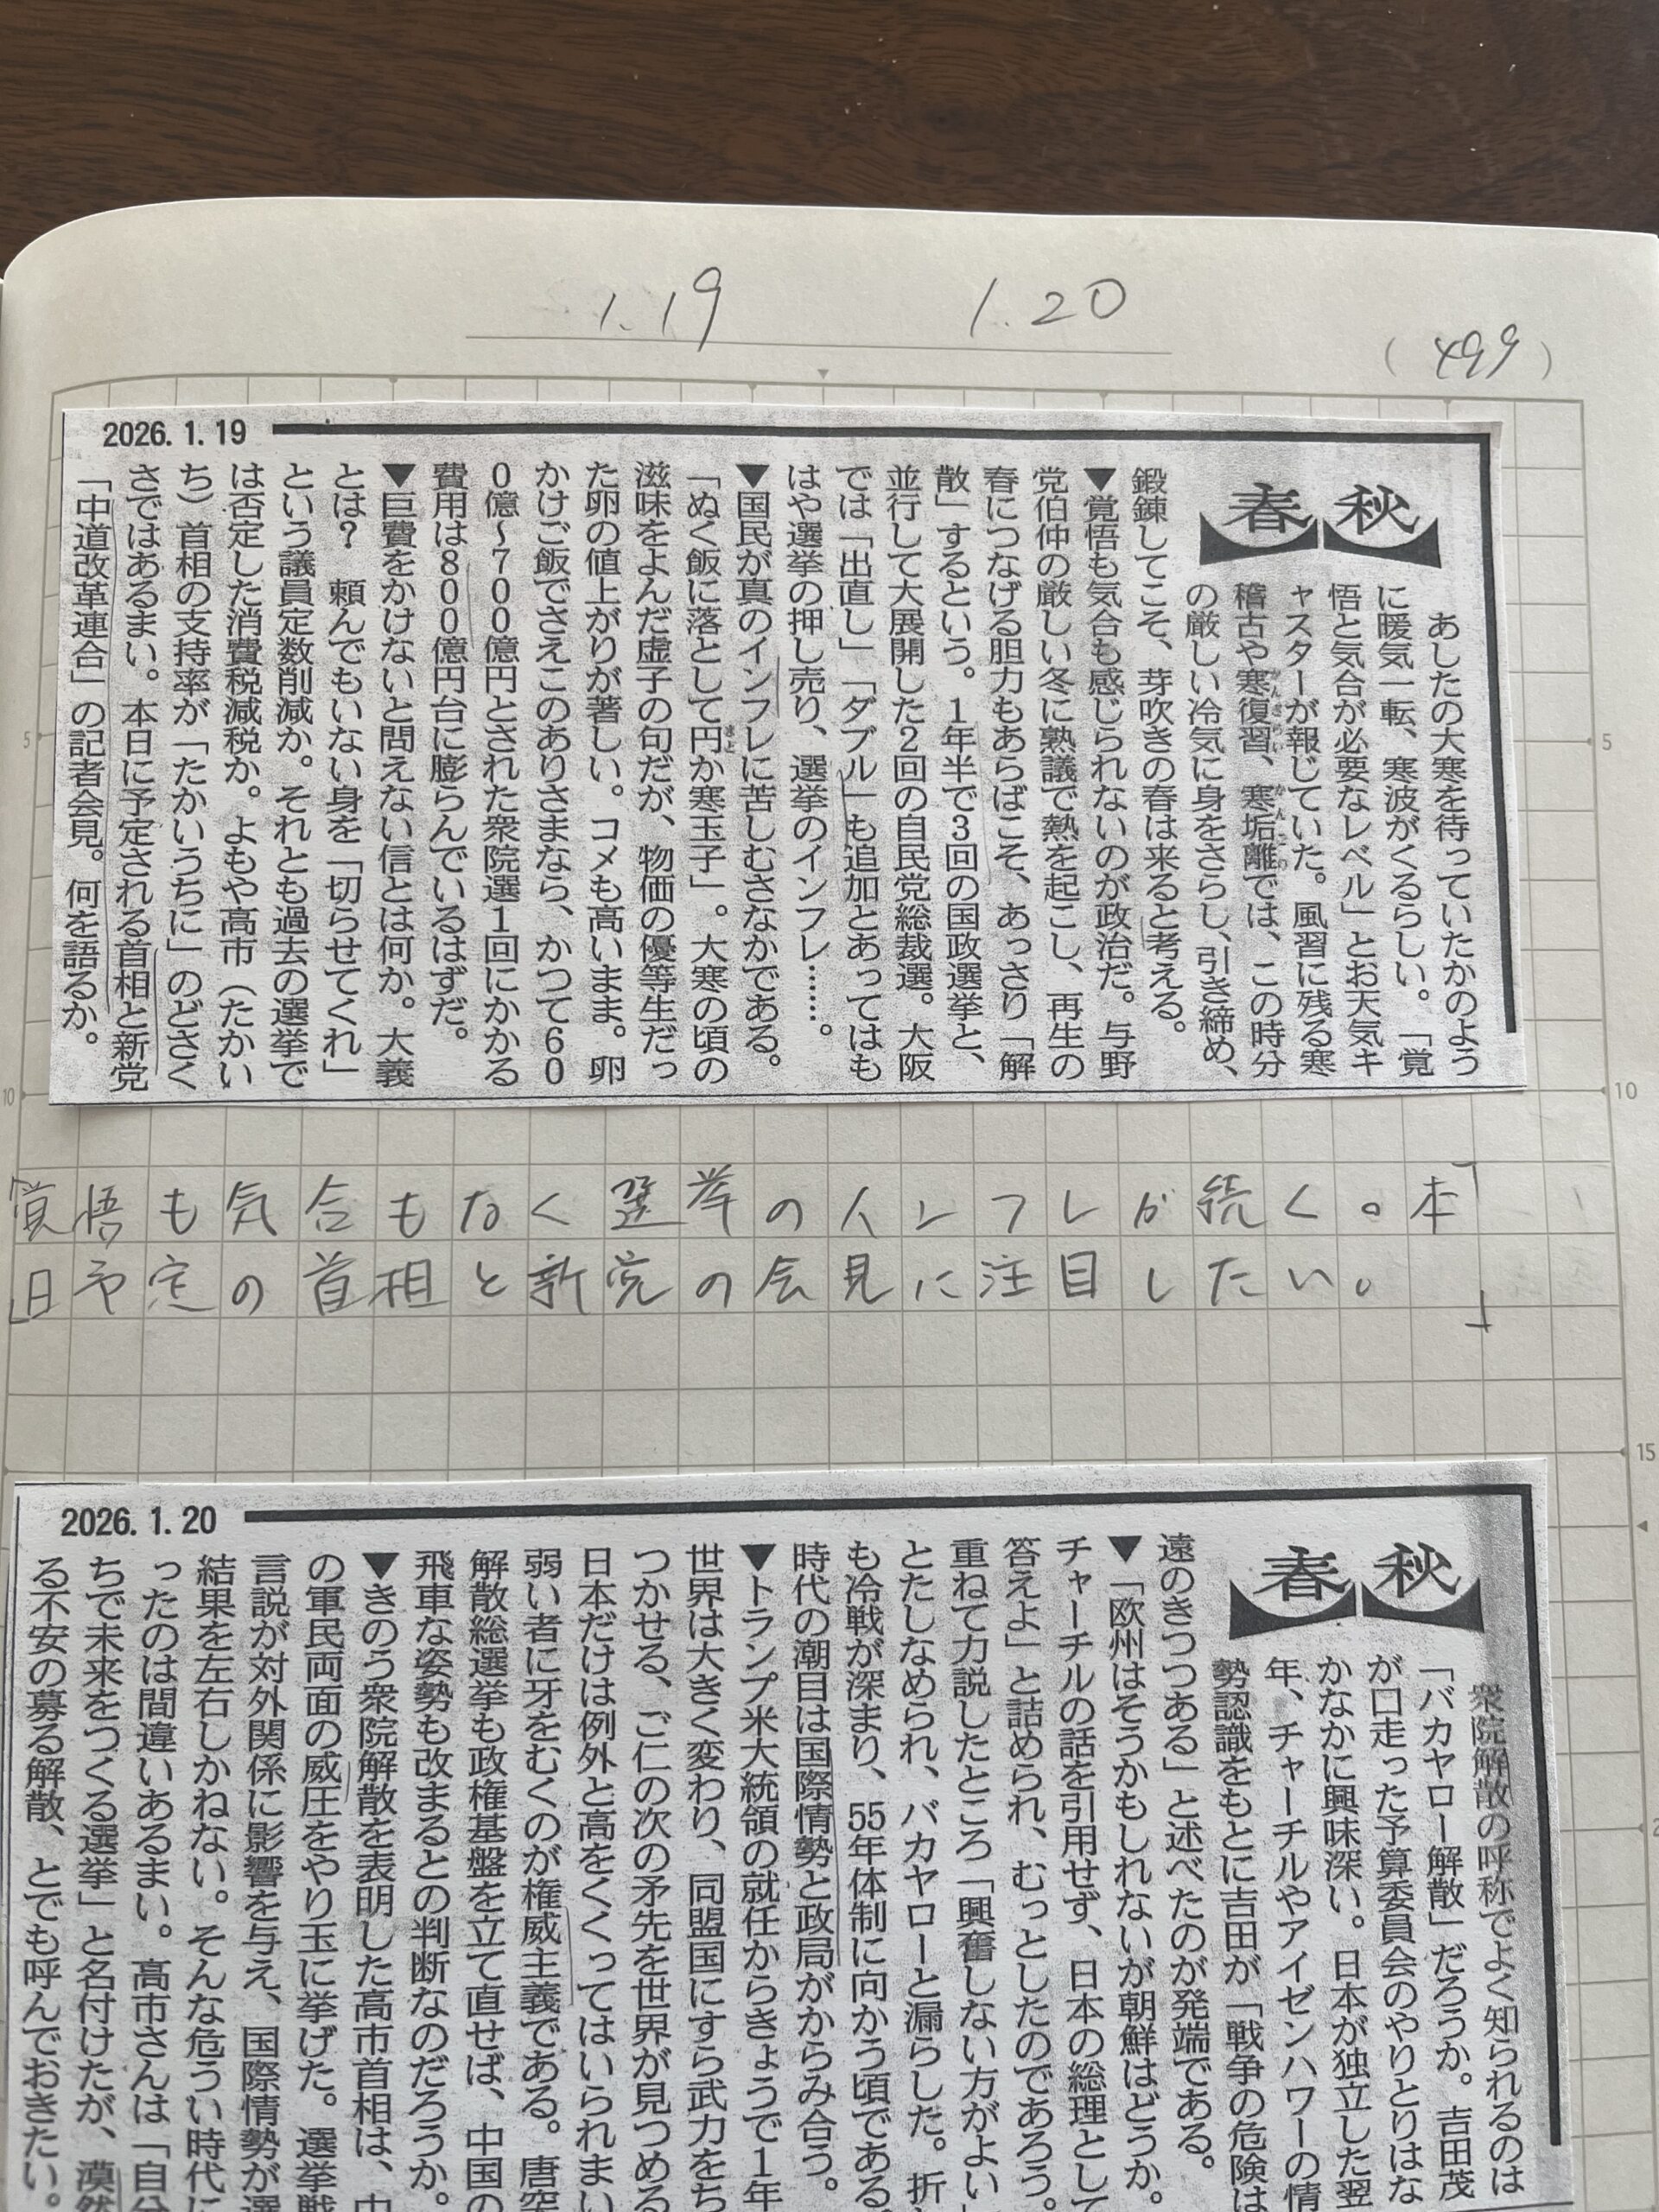 1.19 1.20
(499)
2026.1.19
春秋
あしたの大寒を待っていたかのよう
に暖気一転、寒波がくるらしい。「覚
悟と気合が必要なレベル」とお天気キ
ャスターが報じていた。風習に残る寒
稽古や寒復習、寒垢離では、この時分
の厳しい冷気に身をさらし、引き締め、
鍛錬してこそ、芽吹きの春は来ると考える。
▼覚悟も気合も感じられないのが政治だ。与野
党伯仲の厳しい冬に熟議で熱を起こし、再生の
春につなげる胆力もあらばこそ、あっさり「解
散」するという。1年半で3回の国政選挙と、
並行して大展開した2回の自民党総裁選。大阪
では「出直し」「ダブル」も追加とあってはも
はや選挙の押し売り、選挙のインフレ……。
▼国民が真のインフレに苦しむさなかである。
「ぬく飯に落として円か寒玉子」。大寒の頃の
滋味をよんだ虚子の句だが、物価の優等生だっ
た卵の値上がりが著しい。コメも高いまま。卵
かけご飯でさえこのありさまなら、かつて60
0億~700億円とされた衆院選1回にかかる
費用は800億円台に膨らんでいるはずだ。
▼巨費をかけないと問えない信とは何か。大義
とは? 頼んでもいない身を「切らせてくれ」
という議員定数削減か。それとも過去の選挙で
は否定した消費税減税か。よもや高市(たかい
ち)首相の支持率が「たかいうちに」のどさく
さではあるまい。本日に予定される首相と新党
「中道改革連合」の記者会見。何を語るか。
5
10
15
覚悟も気合もなく選挙のインフレが続く。本
日予定の首相と新党の会見に注目したい。
2026.1.20
春秋
衆院解散の呼称でよく知られるのは
「バカヤロー解散」だろうか。吉田茂
が口走った予算委員会のやりとりはな
かなかに興味深い。日本が独立した翌
年、チャーチルやアイゼンハワーの情
勢認識をもとに吉田が「戦争の危険は
遠のきつつある」と述べたのが発端である。
▼「欧州はそうかもしれないが朝鮮はどうか。
チャーチルの話を引用せず、日本の総理として
答えよ」と詰められ、むっとしたのであろう。
重ねて力説したところ「興奮しない方がよい」
とたしなめられ、バカヤローと漏らした。折
も冷戦が深まり、55年体制に向かう頃である
時代の潮目は国際情勢と政局がからみ合う。
▼トランプ米大統領の就任からきょうで1年
世界は大きく変わり、同盟国にすら武力をち
つかせる、ご仁の次の矛先を世界が見つめる
日本だけは例外と高をくくってはいられまい
弱い者に牙をむくのが権威主義である。唐空
解散総選挙も政権基盤を立て直せば、中国の
飛車な姿勢も改まるとの判断なのだろうか。
▼きのう衆院解散を表明した高市首相は、中
の軍民両面の威圧をやり玉に挙げた。選挙戦
言説が対外関係に影響を与え、国際情勢が選
結果を左右しかねない。そんな危うい時代に
ったのは間違いあるまい。高市さんは「自分
ちで未来をつくる選挙」と名付けたが、漠然
る不安の募る解散、とでも呼んでおきたい。